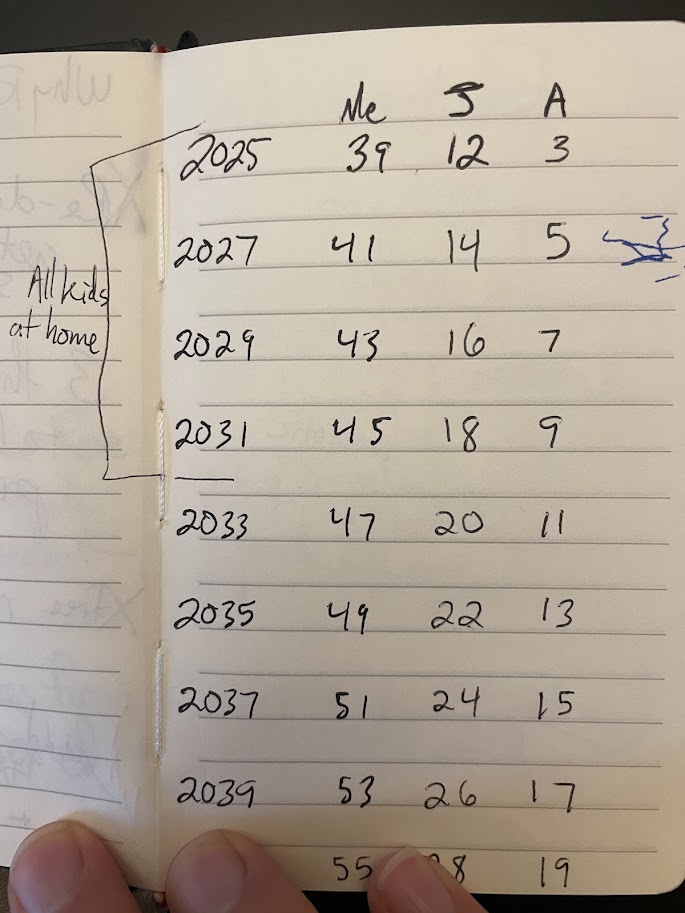 Me J A
2025 39 12 3
2027 41 14 5
All kids
at home
2029 43 16 7
2031 45 18 9
2033 47 20 11
2035 49 22 13
2037 51 24 15
2039 53 26 17
55 19